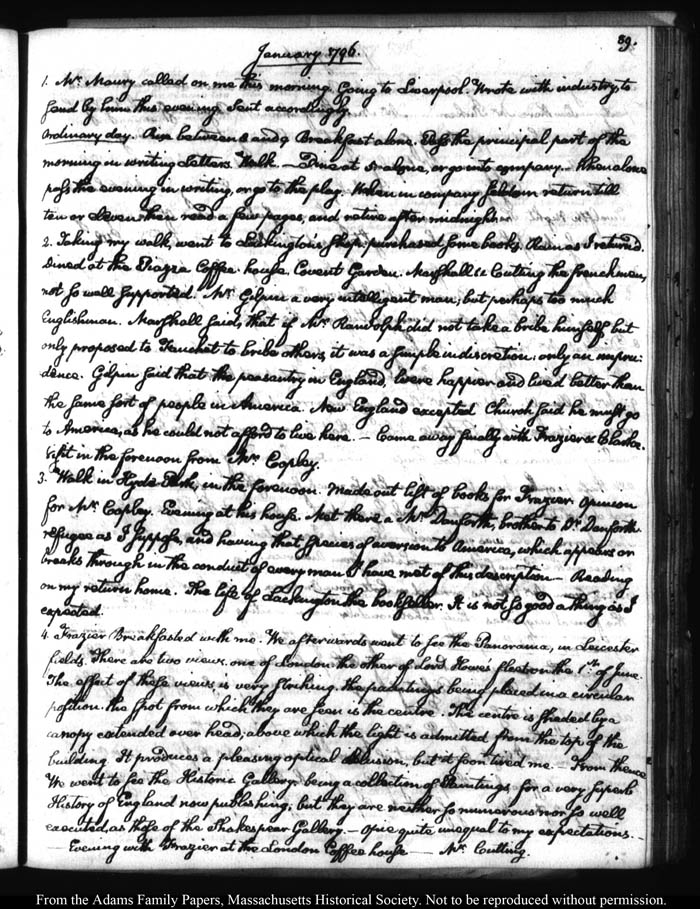 89.
January 1796.
1. Mr. Maury called on me this morning. Going to Liverpool. Wrote with industry to
send by him this evening. Sent accordingly.
Ordinary day. Rise between 8 and 9 Breakfast alone. Pass the principal part of the
morning in writing Letters. Walk. — Dine at 5 alone, or go into company — When alone
pass the evening in writing, or go to the play. When in company seldom return till
ten or eleven then read a few pages, and retire after midnight.
2. Taking my walk, went to Lackington's shop: purchased some books. Rain as I return'd.
Dined at the Piazza Coffee house, Covent Garden. Marshall & Cutting the frenchmen,
not so well supported. Mr. Gilpin a very intelligent man; but perhaps too much
Englishman. Marshall said, that if Mr. Randolph did not take a bribe himself but
only proposed to Fauchet to bribe others, it was a simple indiscretion: only an impru-
dence. Gilpin said that the peasantry in England, were happier and lived better than
the same sort of people in America. New England excepted. Church said he must go
to America, as he could not afford to live here. — Came away finally with Frazier & Clarke.
Visit in the forenoon from Mr. Copley.
3. Walk in Hyde Park, in the forenoon. Made out list of books for Frazier. Opinion
for Mr. Copley. Evening at his house. Met there a Mr. Danforth, brother to Dr. Danforth
refugee as I suppose, and having that species of aversion to America, which appears or
breaks through in the conduct of every man I have met of this description — Reading
on my return home. The life of Lackington the bookseller. It is not so good a thing as I
expected.
4. Frazier Breakfasted with me. We afterwards went to see the Panorama, in Leicester
fields. There are two views. one of London the other of Lord Howe's fleet on the 1st. of June.
The effect of these views is very striking. the paintings being placed in a circular
position. the spot from which they are seen is the centre. The centre is shaded by a
canopy extended over head; above which the light is admitted from the top of the
building. It produces a pleasing optical delusion, but it soon tired me. — From thence
We went to see the Historic Gallery: being a collection of Paintings, for a very superb
History of England now publishing; but they are neither so numerous nor so well
executed, as those of the Shakespear Gallery. — quite unequal to my expectations. —
Evening with Frazier at the London Coffee house — Mr. Cutting.
From the Adams Family Papers, Massachusetts Historical Society. Not to be reproduced without permission.